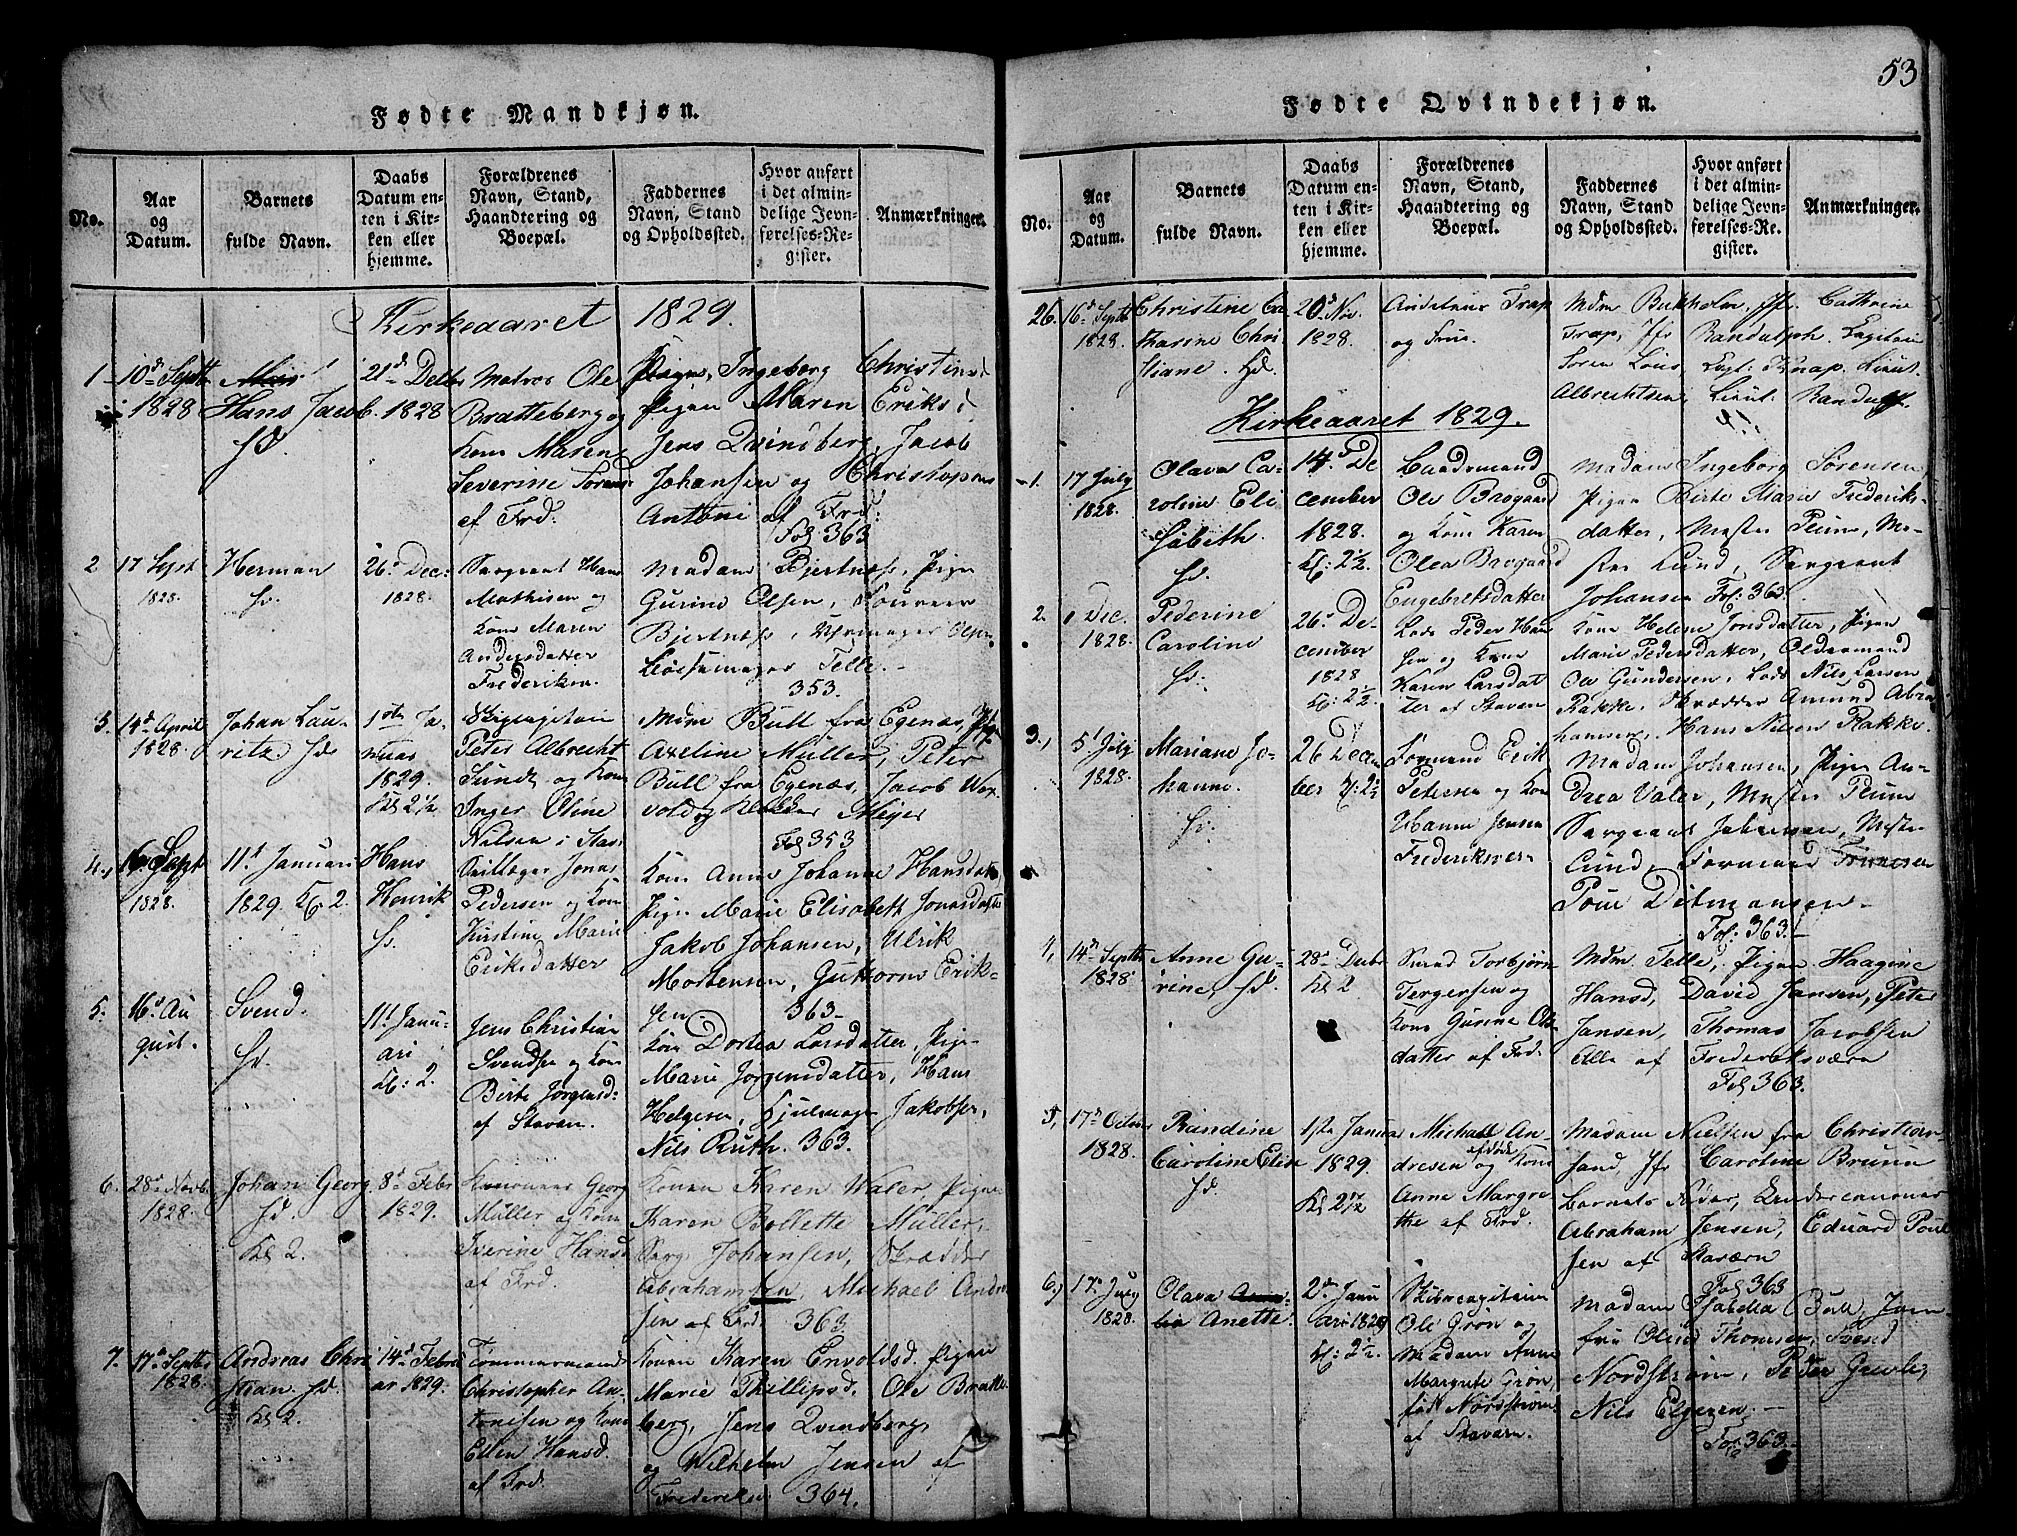 Fødte Mandkjøn.
No.
Aar
og
Datum.
Barnets
fulde Navn.
Daabs
Datum en-
ten i Kir-
ken eller
hjemme.
Forældrenes
Navn, Stand,
Haandtering og
Boepæl.
Faddernes
Navn, Stand
og Opholdssted.
Hvor anført
i det almin-
delige Jevn-
førelses-Re-
gister.
Anmærkninger.
Kirkeaaret 1829.
1
10d Septbr
1828
Hans Jacob
hd.
21d Decbr
1828
Matros Ole
Bratteberg og
Kone Maren
Severine Sørens
af Frd.
Pigen, Ingeborg Christinsd
Pigen Maren Eriksd
Jens Qvindberg, Jacob
Johansen og Christophen
Antoni af Frd:
Fol 363
2
17 Sept
1828.
Herman
hd.
26d Dec:
1828.
Sergeant Hans
Mathisen og
Kone Maren
Andersdatter
Frederiksv.
Madam Bjertnæs, Pigen
Gurine Olsen,
Bjertnæs, Uhrmager Olsen
Bøssemager Telle.
353.
3.
14d April
1828.
Johan Lau-
ritz hd
1ste Ja-
nuar
1829.
Kl 2½
Peter Albrecht
Sundt og Kone
Inger Oline
Nilsen i Stav
Mdm Bull fra Egenæs,
Axeline Müller, Peter
Bull fra Egenæs, Jacob Wex
vold og Klokker Meyer
Fol 353
4.,
16 Sept
1828.
11te Januari
1829. Kl 2.
Hans
Henrik
hd.
Jonas
Pedersen og Kone
Kirstine Marie
Eriksdatter
Kone Anne Johanne Hansdatter
Pigen Marie Elisabeth Jonasdatter
Jakob Johansen, Ulrik
Mortensen, Guttorm Erik-
sen. 363-
5.
16d Au
gust.
Svend.
hd.
11t Janu-
ari
Kl: 2.
Jens Christian
Svendsen og Kone
Birte Jørgensd-
af Staværn.
Kone Dortea Larsdatter, Pigen
Marie Jørgensdatter, Hans
Helgesen, Hjulmager Jakobsen,
Nils Ruth. 363.
6.
28d Novb.
1828.
Johan Georg
hd.
Kl 2.
8d Febr
1829.
Kanoneer Georg
Müller og Kone
Iverine Hansd
af Frd.
Konen Karen Waler, Pigen
Karen Bollette Müller,
Serg Johansen, Skrædder
Abrahamsen, Michael Andre
sen af Frd. 363
7.
17d Septbr
1828.
Andreas Chri
stian. hd.
Kl 2.
14d Febru
ar 1829.
Tømmermand
Christopher An-
tonisen og Kone
Ellen Hansd.
af Frd.
Konen Karen Envoldsd. Pigen
Marie Phillipsd, Ole Bratte
berg, Jens Qvindberg,
og Wilhelm Jensen af
Frederiksv 364.
53
Fødte Qvindekjøn.
No.
Aar
og
Datum.
Barnets
fulde Navn.
Daabs
Datum en-
ten i Kir-
ken eller
hjemme.
Forældrenes
Navn, Stand,
Haandtering og
Boepæl.
Faddernes
Navn, Stand
og Opholdssted.
Hvor anført
i det almin-
delige Jevn-
førelses-Re-
gister.
Anmærkninger.
26.
16d Septbr
1828.
Christine Ca
tharine Chri
stiane. hd.
20d Nov.
1828.
Trap
og Frue.
Mdm Bukholm, Jfr. Cathrine
Trap, Jfr Randulph. Capitain
Søren Lous, Capt. Knap, Lieut
Albrechtsen, Lieut. Randulff.
Kirkeaaret 1829.
1.
17 July
1828.
Olava Ca-
roline Eli
sabeth.
hd.
14d De
cember
1828.
Kl: 2½.
Baadsmand
Ole Brogaard
og Kone Karen
Olea Brogaard
Engebretsdatter
Madam Ingeborg Sørensen
Pigen Birte Marie Frederiks-
datter, Mester Peum, Me-
ster Lund, Sergeant
Johansen Fol: 363.
2.
1 Dec.
1828.
Pederine
Caroline
hd:
26d De-
cember
1828
Kl: 2½
Lods Peder Han
sen og Kone
Karen Larsdat
ter af Staværn
Kone Helene Jonsdatter, Pigen
Marie Pedersdatter, Oldermand
Ole Gundersen, Lods Nils Larsen
Rakke, Skrædder Amund Abra
hamsen, Hans Nilsen Rakke.
3.,
5t July
1828.
Mariane Jo-
hanne.
hd.
26 Decem
ber Kl: 2½
Formand Erik
Petersen og Kone
Hanne Jensen
Frederiksværn
Madam Johansen, Pigen An-
drea Valer, Mester Peum
Sergeant Johansen, Mester
Lund, Formand Fransen
Poul Ditmansen-
Fol: 363.-
4,
14d Septbr
1828
Anne Gu-
rine, hd.
28d Decb
Kl 2
Smed Torbjørn
Tergersen og
Kone Gurine Ols
datter af Frd.
Mdm Telle, Pigen Haagine
Hansd, David Jansen, Peter
Jansen, Thomas Jacobsen
Alle af Frederiksværn
Fol 363.
5,
17d October
1828.
Randine
Caroline Elise
hd.
1ste Janua
1829.
Kl 2½
Michael An-
dresen afdøde og Kone
Anne Margre
the af Frd.
Madam Nielsen fra Christian-
sand, Jfr Caroline Bruun
Barnets Fader, Underkanoner
Abraham Jensen, Eduard Poul
sen af Staværn
Fol 363
6.,
17d July
1828.
Olava
Anette.
2d Janu
ari 1829
Kl: 2½.
Skibscapitain
Ole Grøn og
Madam Anne
Margrete Grøn,
født Nordstrøm
af Staværn.
Madam Isabella Bull, Jom-
fru Oline Thomsen, Svend
Nordstrøm, Peder Juul,
Nils Elgeren.-
Fol 363.-